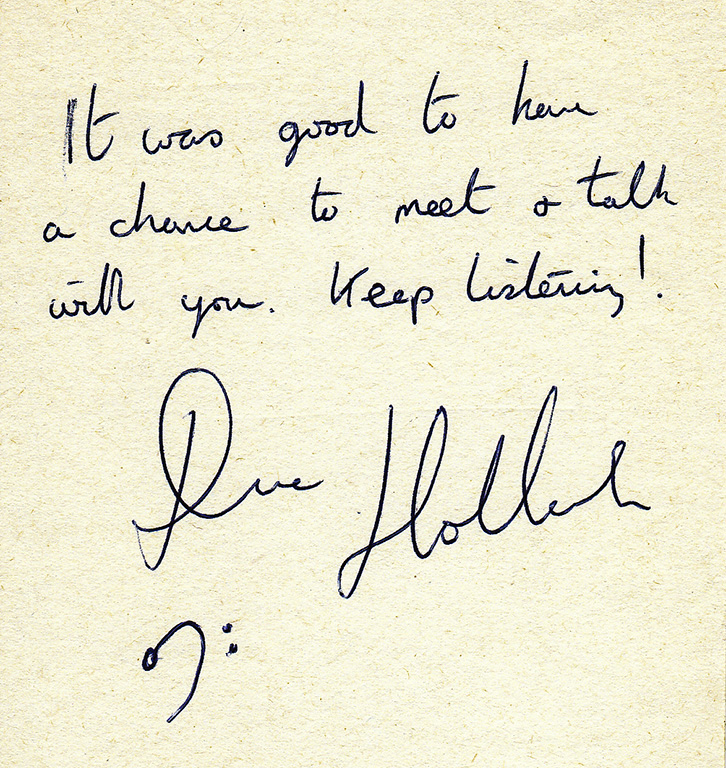 It was good to have
a chance to meet & talk
with you. Keep listening!.
Dave Holland